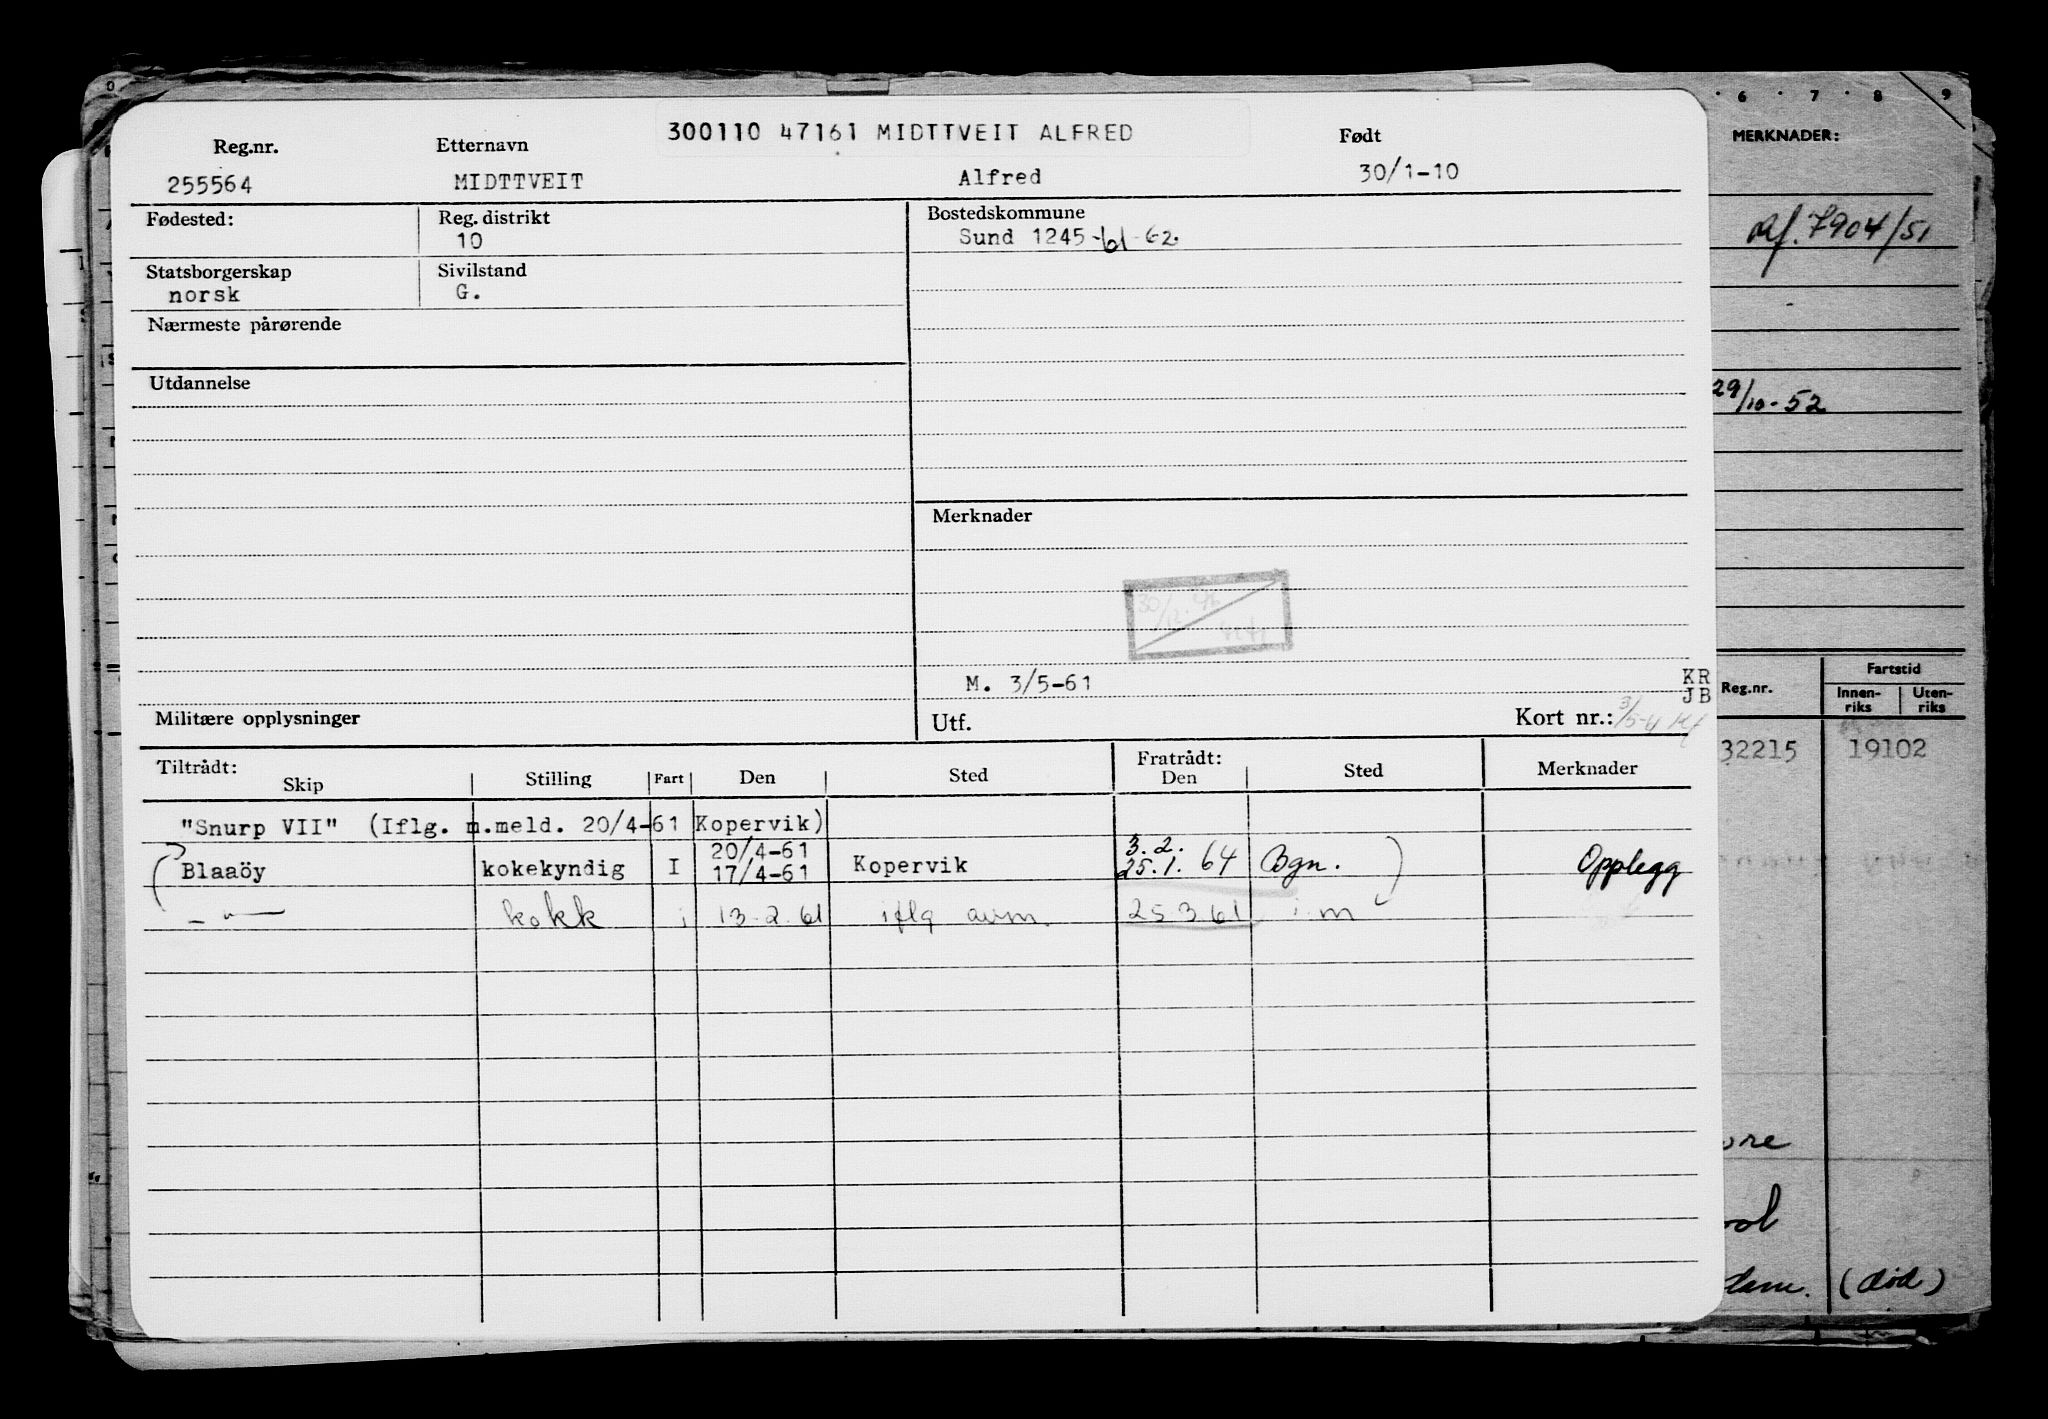 300110 47161 MIDTTVEIT ALFRED
Reg.nr. Etternavn Født
255564 MIDTTVEIT Alfred 30/1-10
Fødested: Reg. distrikt Bostedskommune
10 Sund 1245-61-62.
Statsborgerskap Sivilstand
norsk G.
Nærmeste pårørende
Utdannelse
Merknader
M. 3/5-61
KR
JB
Militære opplysninger Utf. Kort nr.:
Tiltrådt: Fratrådt:
Skip Stilling Fart Den Sted Den Sted Merknader
"Snurp VII" (Iflg. m.meld. 20/4-61 Kopervik)
20/4-61 3.2.
Blaaöy kokekyndig I 17/4-61 Kopervik 25.1. 64 Bgn. Opplegg
— " — kokk i 13-2-61 iflg avm. 25 3 61 i.m
6 7 8 9
MERKNADER:
Rf. 7904/51
29/10-52
Fartstid
Reg.nr. Innen-riks Uten-riks
32215 19102
(død)